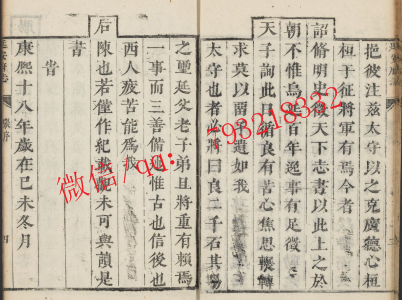 挹彼注茲太守以之克廣德心桓
桓于征將軍有焉今者
詔脩明史徵天下志書以此上之於
朝不惟為是百年逸事有足徵
天子詢此日循良有苦心焦思輾轉
求莫以留遺如我
太守也者必將曰良二千石其
之璽延父老子弟且將重有賴焉
一事而三善備惟古也信後也
西人疲苦能為我
后陳也若僅作紀載觀未可與讀是
書
旹
康熙十八年歲在己未冬月
四
微信/qq: 793218332